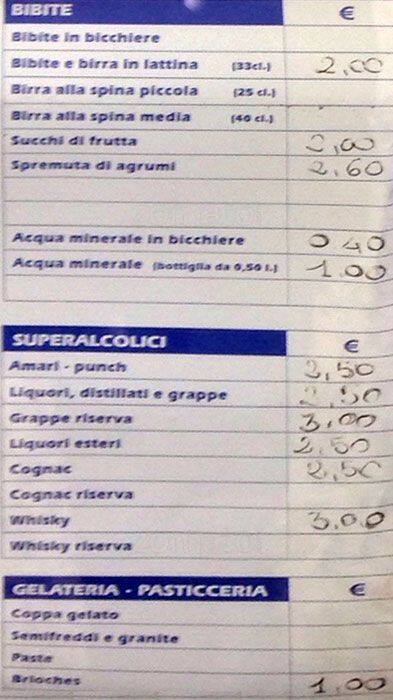 BIBITE €
Bibite in bicchiere
Bibite e birra in lattina (33cl.) 2,00
Birra alla spina piccola (25 cl.)
Birra alla spina media (40 cl.)
Succhi di frutta 2,00
Spremuta di agrumi 2,60
Acqua minerale in bicchiere 0 40
Acqua minerale (bottiglia da 0,50 l.) 1.00
SUPERALCOLICI €
Amari - punch 2,50
Liquori, distillati e grappe 2,50
Grappe riserva 3,00
Liquori esteri 2,50
Cognac 2,50
Cognac riserva
Whisky 3,00
Whisky riserva
GELATERIA - PASTICCERIA €
Coppa gelato
Semifreddi e granite
Paste
Brioches 1,00